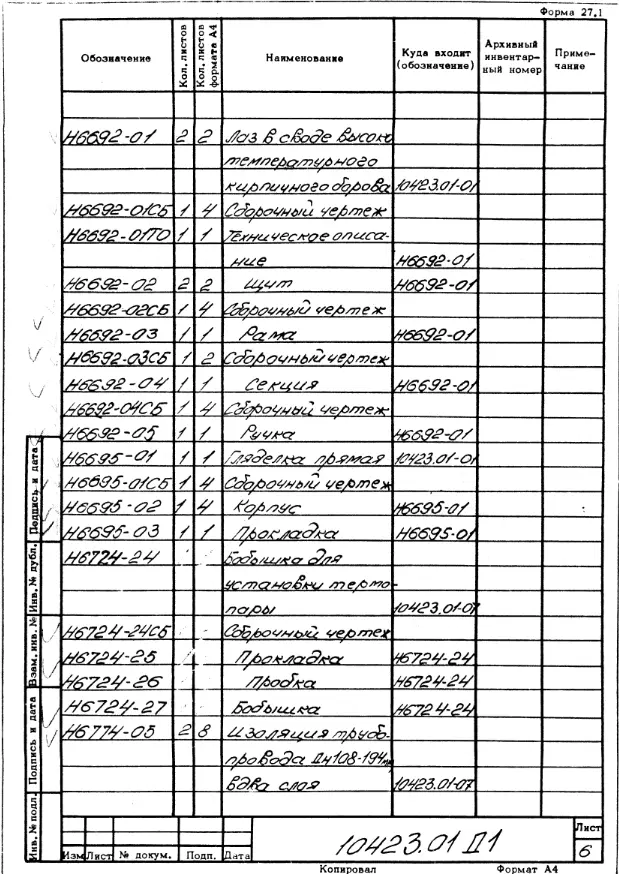 Форма 27.1
Обозначение Кол. листов Кол. листов формата А4 Наименование Куда входит (обозначение) Архивный инвентар-ный номер Приме-чание
Н6692-01 2 2 Лаз в своде высоко
температурного
кирпичного борова 10423.01-01
Н6692-01СБ 1 4 Сборочный чертеж
Н6692-01ТО 1 1 Техническое описа-
ние Н6692-01
Н6692-02 2 2 Щит Н6692-01
Н6692-02СБ 1 4 Сборочный чертеж
Н6692-03 1 1 Рама Н6692-01
Н6692-03СБ 1 2 Сборочный чертеж
Н6692-04 1 1 Секция Н6692-01
Н6692-04СБ 1 4 Сборочный чертеж
Н6692-05 1 1 Ручка Н6692-01
Н6695-01 1 1 Гляделка прямая 10423.01-01
Н6695-01СБ 1 4 Сборочный чертеж
Н6695-02 1 4 Корпус Н6695-01
Н6695-03 1 1 Прокладка Н6695-01
Н6724-24 Бобышка для
установки термо-
пары 10423.01-07
Н6724-24СБ Сборочный чертеж
Н6724-25 Прокладка Н6724-24
Н6724-26 Пробка Н6724-24
Н6724-27 Бобышка Н6724-24
Н6774-05 2 8 Изоляция трубо-
провода Дн108-194мм
в два слоя 10423.01-07
Инв. № подл. Подпись и дата Взам. инв. № Инв. № дубл. Подпись и дата
Изм Лист № докум. Подп. Дата
10423.01 Д1
Лист
6
Копировал Формат А4